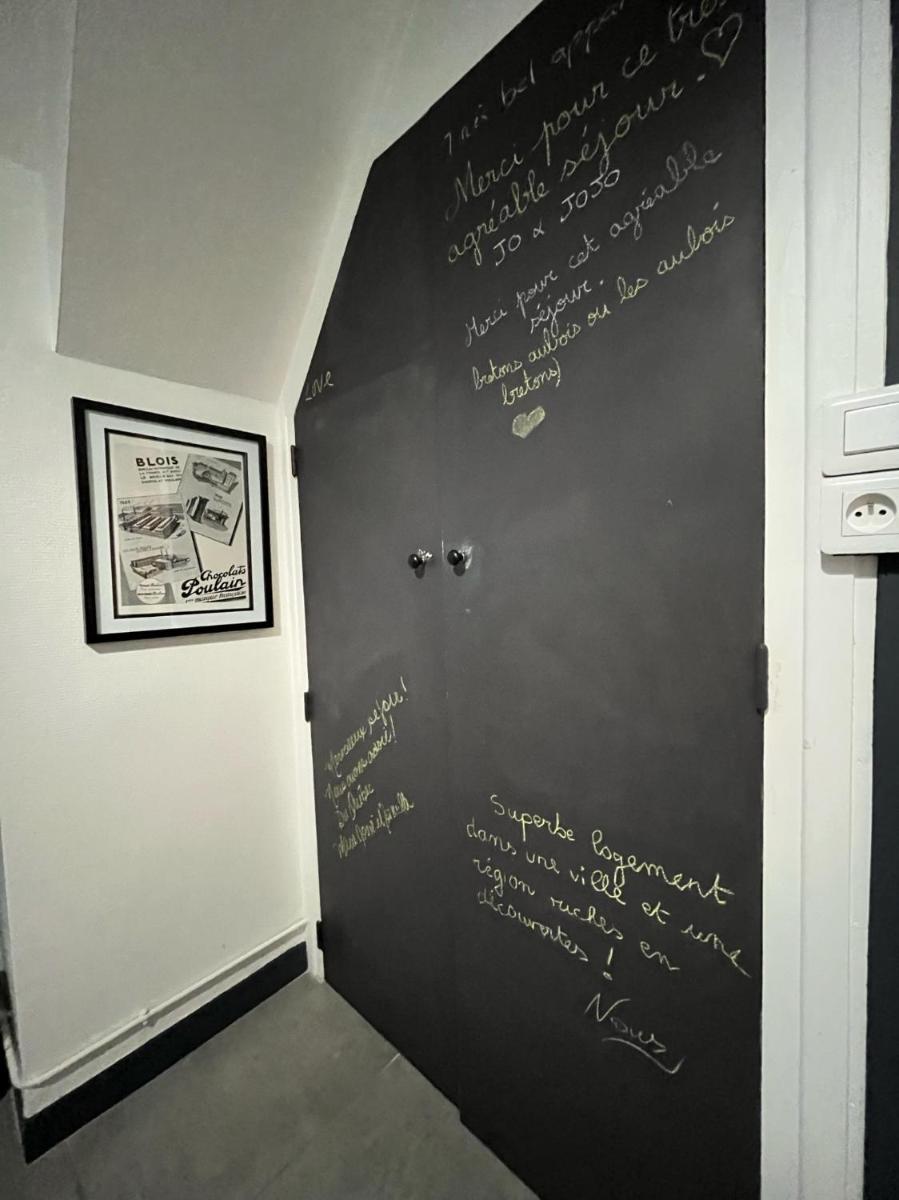 Très bel appar
Merci pour ce très
agréable séjour. ♡
JO & JOJO
Merci pour cet agréable
séjour.
bretons aubois ou les aubois
bretons)
LOVE
BLOIS
Chocolats
Poulain
Merveilleux séjour!
Superbe logement
dans une ville et une
région riches en
découvertes !
Nous